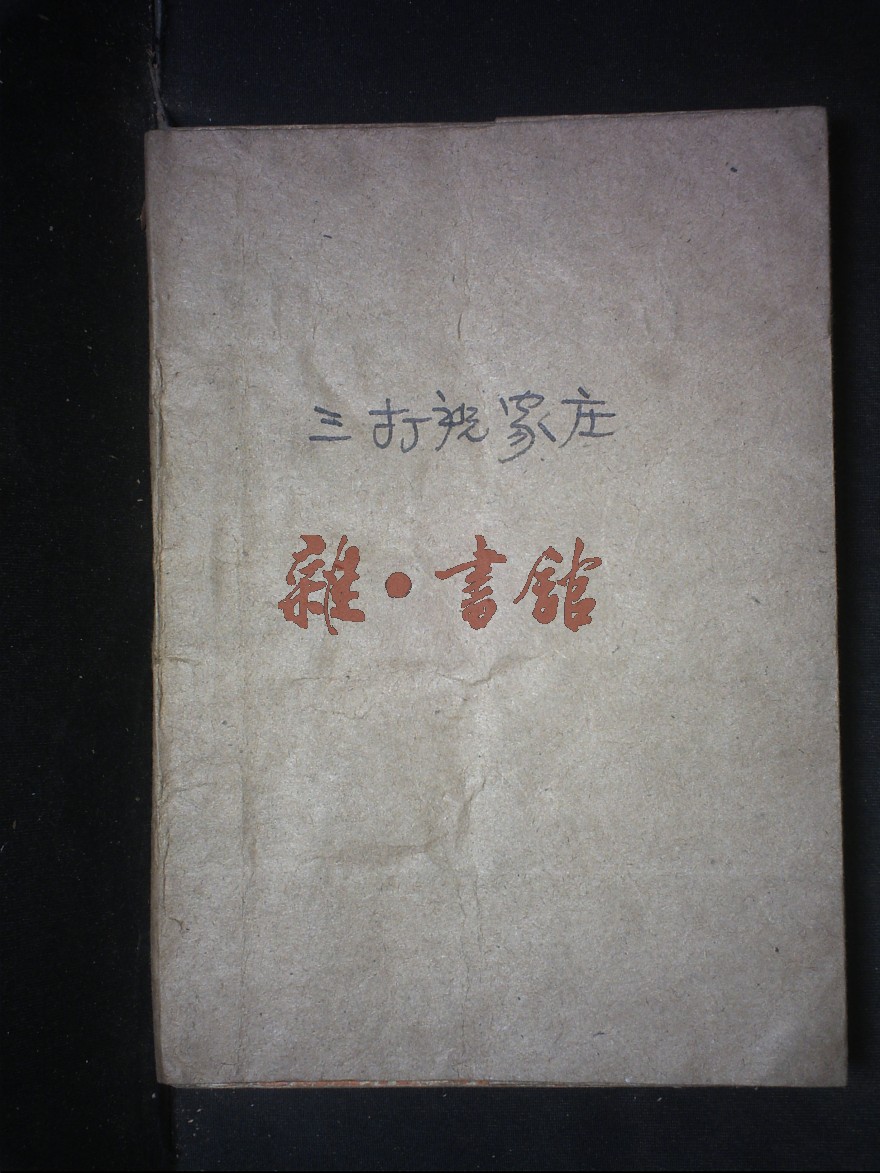 三打祝家庄
雜·書館